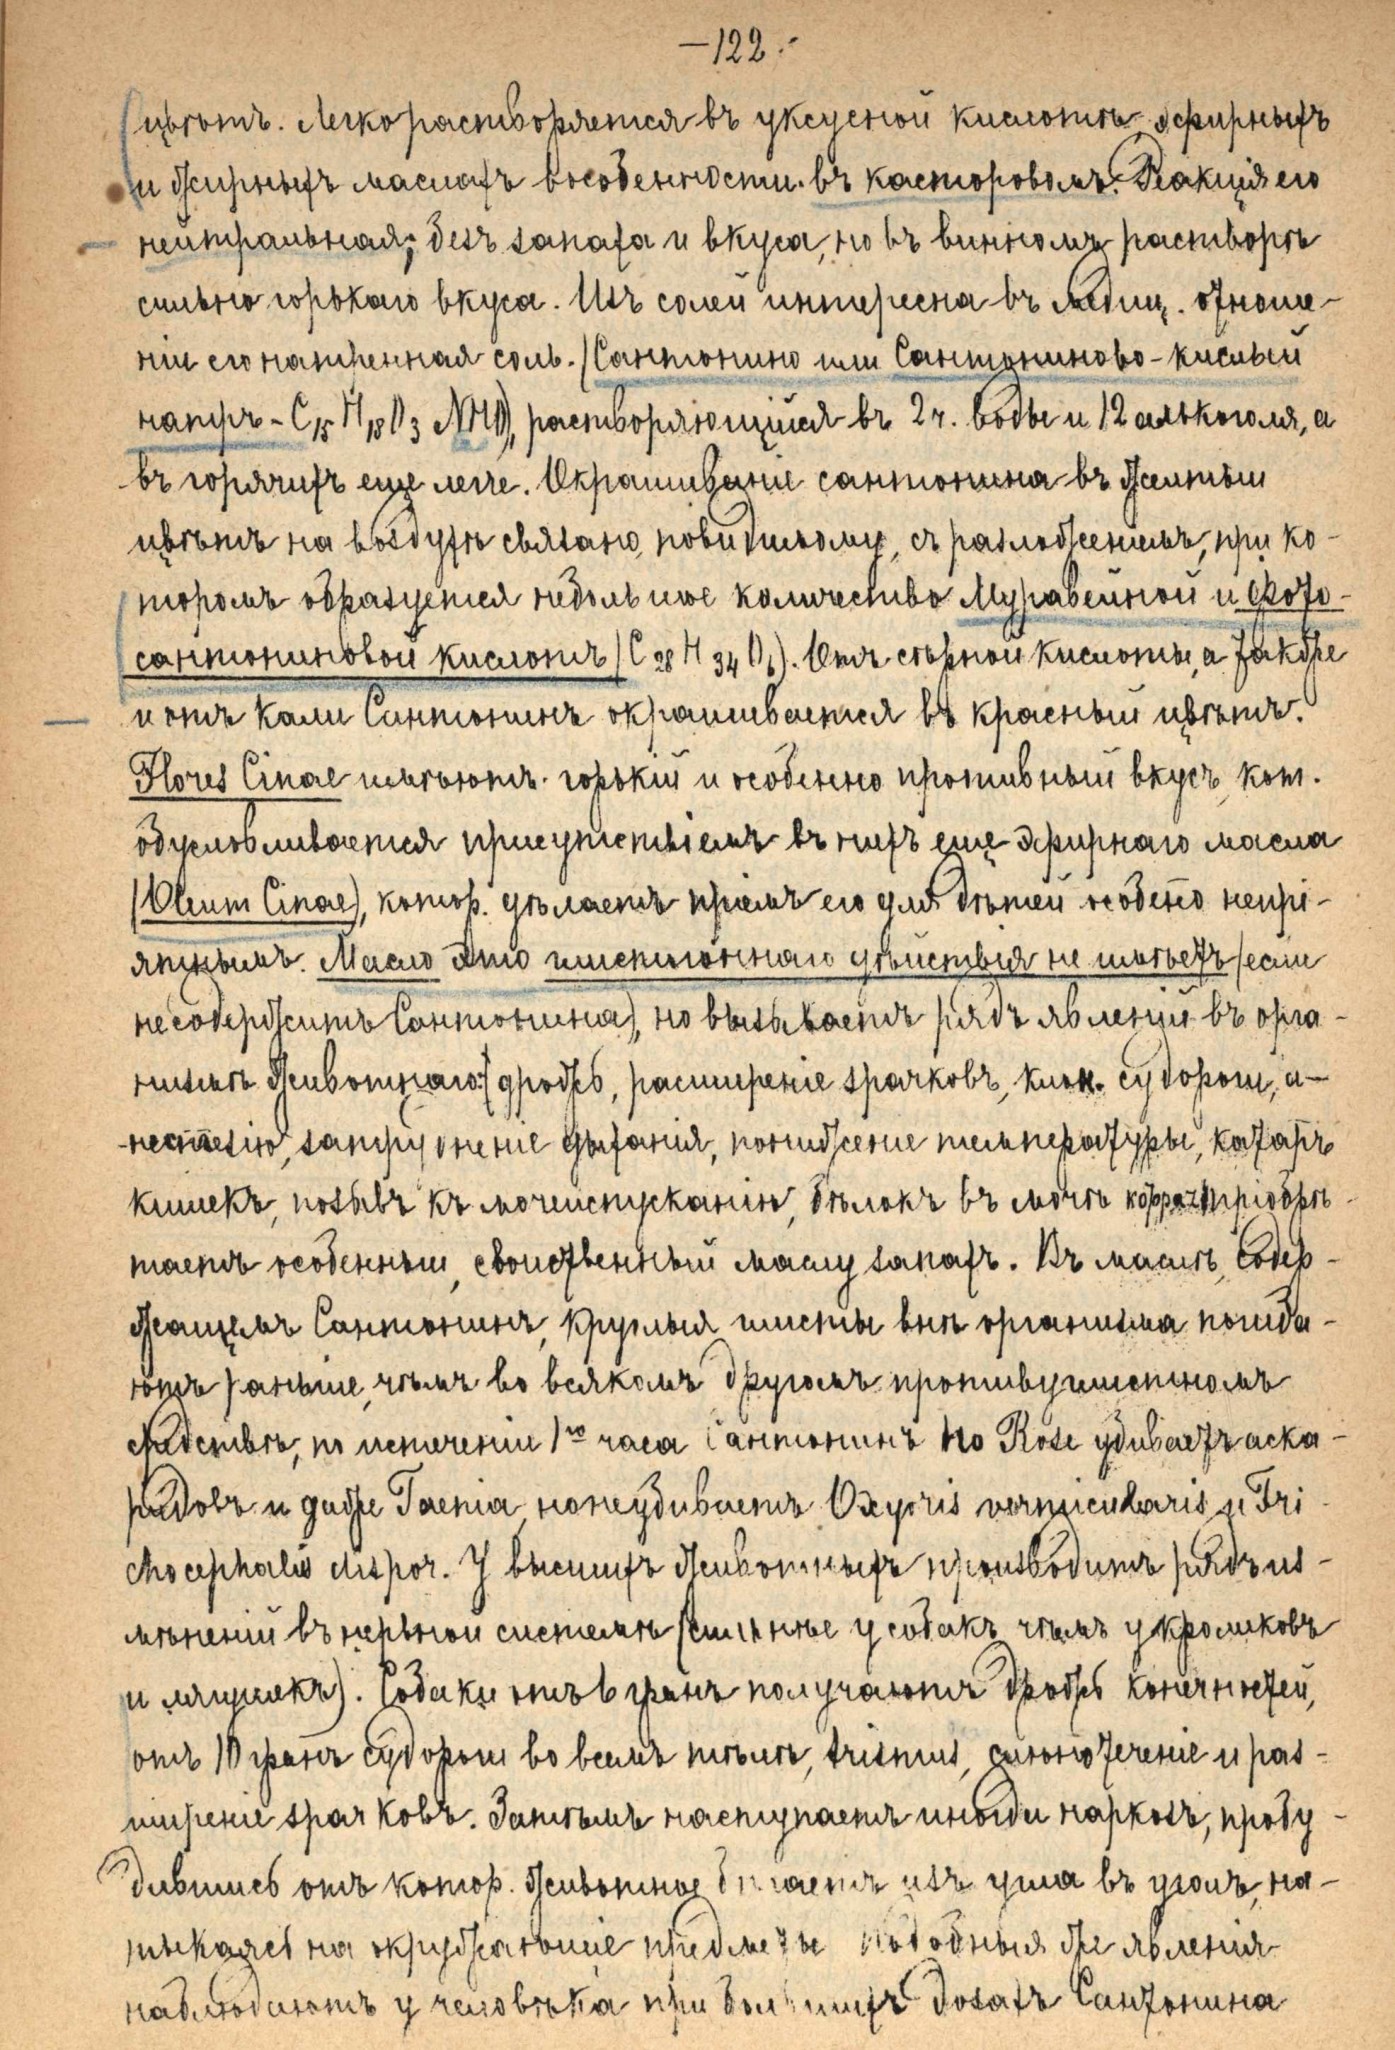 —122.-
цвѣтъ. Легко растворяется въ уксусной кислотѣ эфирныхъ
и жирныхъ маслахъ въ особенности въ касторовомъ. Реакція его
нейтральная; безъ запаха и вкуса, но въ винномъ растворѣ
сильно горькаго вкуса. Изъ солей интересна въ медиц. отноше-
ніи его натренная соль. (Сантонино или Сантониново-кислый
натръ - C15 H18 O3 NHO), растворяющійся въ 2 ч. воды и 12 алькоголя, а
въ горячихъ еще легче. Окрашиваніе сантонина въ желтый
цвѣтъ на воздухѣ связано, повидимому, съ разложеніемъ, при ко-
торомъ образуется небольшое количество Муравейной и Фото-
сантониновой кислотъ (C28 H34 O6). Отъ сѣрной кислоты, а также
и отъ кали Сантонинъ окрашивается въ красный цвѣтъ.
Flores Cinae имѣютъ горькій и особенно противный вкусъ, кот.
обусловливается присутствіемъ въ нихъ еще эфирнаго масла
(Oleum Cinae), котор. дѣлаетъ пріемъ его для дѣтей особено непрі-
ятнымъ. Масло это глистогоннаго дѣйствія не имѣетъ (если
не содержитъ Сантонина), но вызываетъ рядъ явленій въ орга-
низмѣ животнаго: (дрожь, расширеніе зрачковъ, клон. судороги, а-
нестезію, затрудненіе дыханія, пониженіе температуры, катарръ
кишекъ, позывъ къ мочеиспусканію, бѣлокъ въ мочѣ пріобрѣ-
таетъ особенный, свойственный маслу запахъ. Въ маслѣ, содер-
жащемъ Сантонинъ, круглыя глисты внѣ организма погиба-
ютъ раньше, чѣмъ во всякомъ другомъ противуглистномъ
средствѣ, по истеченіи 1го часа Сантонинъ по Rose убиваетъ аска-
ридовъ и даже Taenia, но не убиваетъ Oxyuris vermicularis и Tri-
chocephalis dispor. У высшихъ животныхъ производитъ рядъ из-
мѣненій въ нервной системѣ (сильнѣе у собакъ чѣмъ у кроликовъ
и лягушекъ). Собаки отъ 6 гранъ получаютъ дрожь конечностей,
отъ 10 гранъ судороги во всемъ тѣлѣ, trismus, слюнотеченіе и рас-
ширеніе зрачковъ. Затѣмъ наступаетъ иногда наркозъ, пробу-
дившись отъ котор. животное бѣгаетъ изъ угла въ уголъ, на-
тыкаясь на окружающіе предметы Подобныя же явленія
наблюдаютъ у человѣка при большихъ дозахъ Сантонина